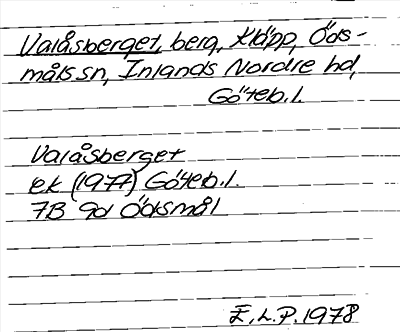 Valåsberget, berg, Kläpp, Öds-
måls sn, Inlands Nordre hd,
Göteb.l.
Valåsberget
ek (1977) Göteb.l.
7B 9d Ödsmål
E.L.P. 1978